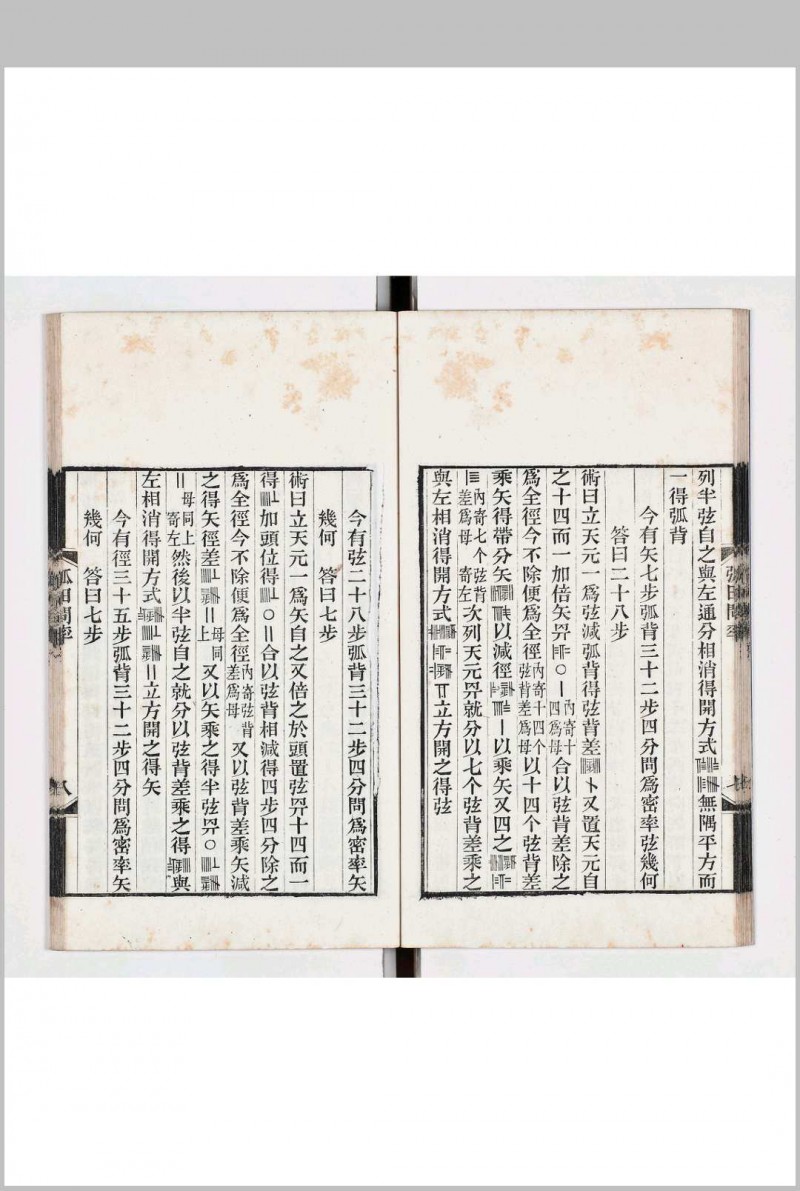 列半弦自之與左通分相消得開方式無隅平方而
一得弧背
今有矢七步弧背三十二步四分問為密率弦幾何
答曰二十八步
術曰立天元一為弦減弧背得弦背差又置天元自
之十四而一加倍矢〇內寄十四為母合以弦背差除之
為全徑今不除便為全徑內寄十四个弦背差為母以十四个弦背差
乘矢得帶分矢以減徑以乘矢又四之
內寄七个弦背差為母寄左次列天元就分以七个弦背差乘之
與左相消得開方式立方開之得弦
今有弦二十八步弧背三十二步四分問為密率矢
幾何 答曰七步
術曰立天元一為矢自之又倍之於頭置弦十四而一
得加頭位得合以弦背相減得四步四分除之
為全徑今不除便為全徑內寄弦背差為母又以弦背差乘矢減
之得矢徑差母同上又以矢乘之得半弦
母同上寄左然後以半弦自之就分以弦背差乘之得與
左相消得開方式立方開之得矢
今有徑三十五步弧背三十二步四分問為密率矢
幾何 答曰七步
弧田問率
八